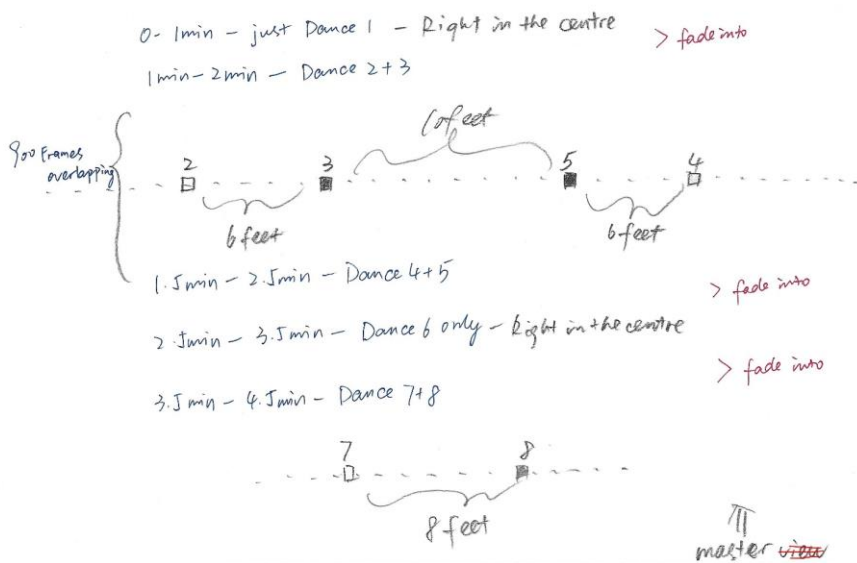 0- 1min - just Dance 1 - Right in the centre > fade into
1min - 2min - Dance 2+3
900 Frames
overlapping
10feet
2 3 5 4
6 feet 6 feet
1.5min - 2.5min - Dance 4+5
> fade into
2.5min - 3.5min - Dance 6 only - Right in the centre
> fade into
3.5min - 4.5min - Dance 7+8
7 8
8 feet
master view